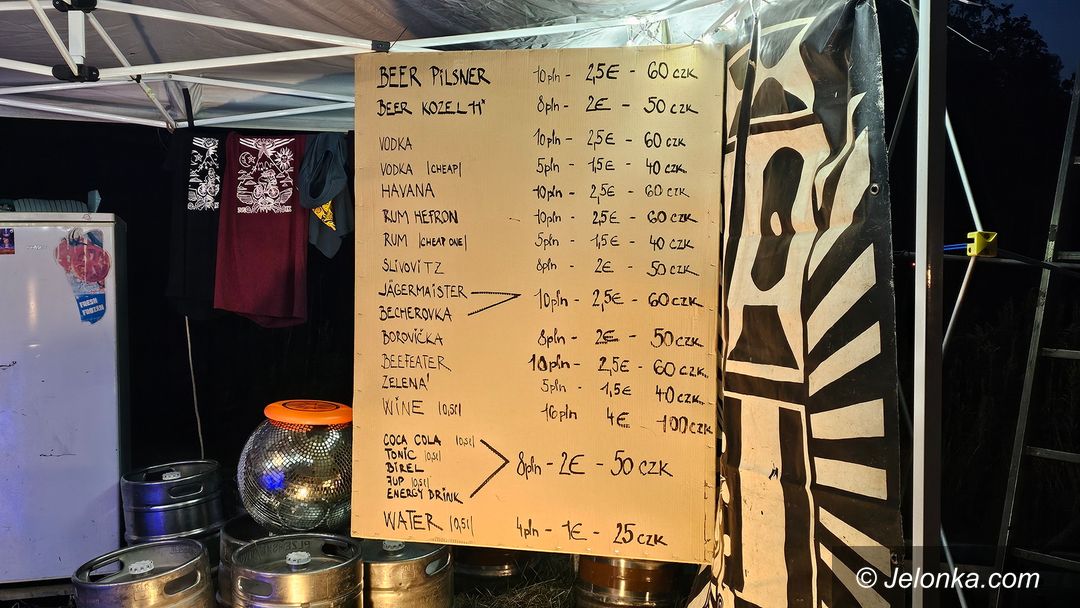 BEER PILSNER 10pln - 2,5€ - 60 CZK
BEER KOZEL 11° 8pln - 2€ - 50 CZK
VODKA 10pln - 2,5€ - 60 CZK
VODKA |CHEAP| 5pln - 1,5€ - 40 CZK
HAVANA 10pln - 2,5€ - 60 CZK
RUM HEFRON 10pln - 2,5€ - 60 CZK
RUM |CHEAP ONE| 5pln - 1,5€ - 40 CZK
SLIVOVITZ 8pln - 2€ - 50 CZK
JÄGERMAISTER
BECHEROVKA 10pln - 2,5€ - 60 CZK
BOROVIČKA 8pln - 2€ - 50 CZK
BEEFEATER 10pln - 2,5€ - 60 CZK
ZELENÁ 5pln - 1,5€ - 40 CZK
WINE |0,5l| 16pln 4€ - 100 CZK
COCA COLA |0,5l|
TONIC |0,5l|
BIREL 8pln - 2€ - 50 CZK
7UP |0,5l|
ENERGY DRINK
WATER |0,5l| 4pln - 1€ - 25 CZK
FRESH
FROZEN
© Jelonka.com